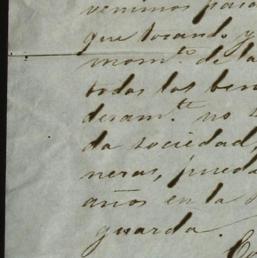 venimos pas
que tocando y
mom.to de la
todos los ben
deram.te no
da sociedad,
neras, pueda
años en la
guarda.
Co